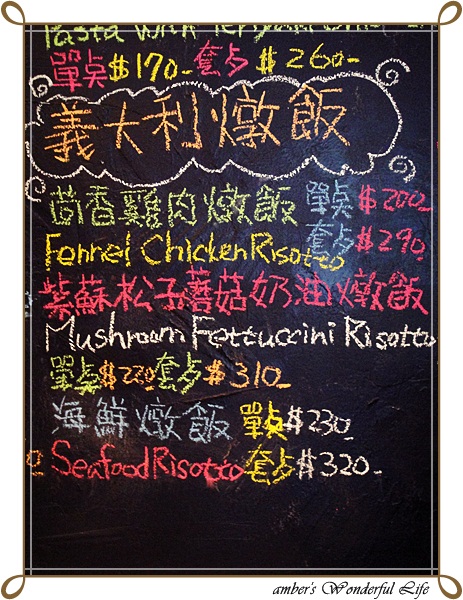 Pasta with Teriyaki
單点 $170- 套点 $260-
義大利燉飯
茴香雞肉燉飯 單点 $200-
Fennel Chicken Risotto 套点 $290
紫蘇松子蘑菇奶油燉飯
Mushroom Fettuccini Risotto
單点 $220 套点 $310-
海鮮燉飯 單点 $230-
Seafood Risotto 套点 $320-
amber's Wonderful Life